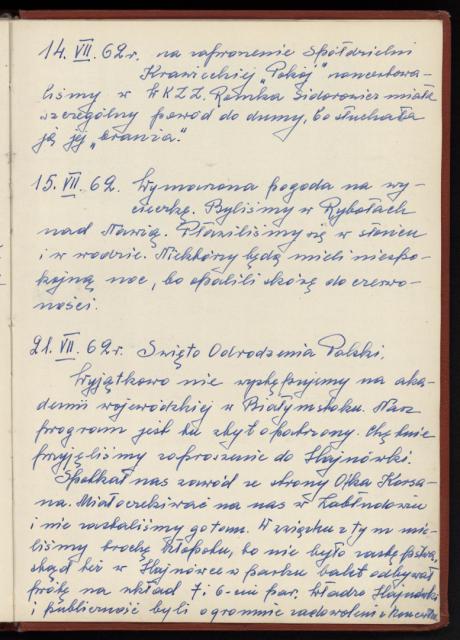 14. VII. 62 r. na zaproszenie Spółdzielni
Krawieckiej „Pokój” koncertowa-
liśmy w WKZZ. Romka Sidorowicz miała
szczególny powód do dumy, bo słuchała
ją jej „branża.”
15. VII. 62. Wymarzona pogoda na wy-
cieczkę. Byliśmy w Rybołach
nad Narwią. Pławiliśmy się w słońcu
i w wodzie. Niektórzy będą mieli niespo-
kojną noc, bo opalili skórę do czerwo-
ności.
21. VII. 62 r. Święto Odrodzenia Polski.
Wyjątkowo nie występujemy na aka-
demii wojewódzkiej w Białymstoku. Nasz
program jest tu zbyt opatrzony. Chętnie
przyjęliśmy zaproszenie do Hajnówki.
Spotkał nas zawód ze strony Ojka Korsa-
na. Miał oczekiwać na nas w Zabłudowiu
i nie zastaliśmy go tam. W związku z tym mie-
liśmy trochę kłopotu, bo nie było zastępstwa,
skąd też w Hajnówce w parku balet odbywał
próbę na układ 7 i 6-ciu par. Władze Hajnówki
i publiczność byli ogromnie zadowoleni z koncertu